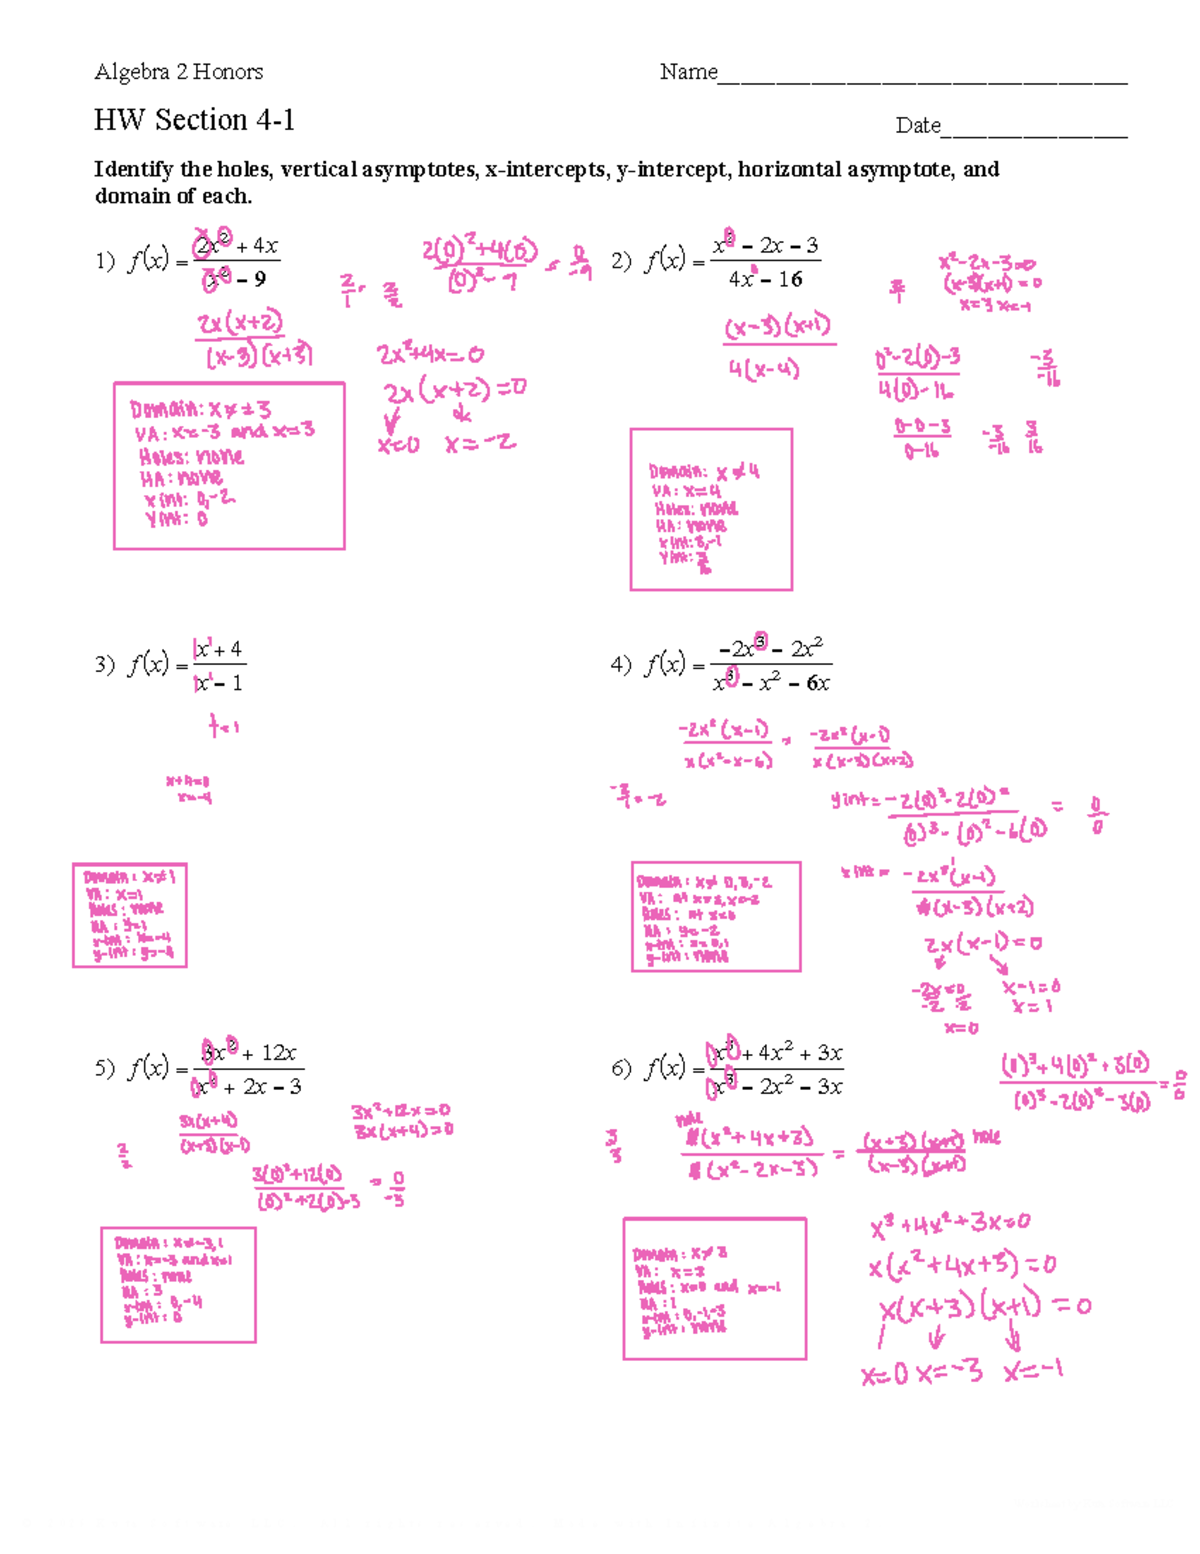 Algebra 2 Honors Name
HW Section 4-1 Date
Identify the holes, vertical asymptotes, x-intercepts, y-intercept, horizontal asymptote, and
domain of each.
1) f(x) = (2x² + 4x)/(x² – 9)
2/1 = 2/2
(2(0)²+4(0))/((0)²-9) = 0/-9
2x(x+2)/((x-3)(x+3))
2x²+4x=0
2x(x+2)=0
x=0 x=-2
Domain: x≠±3
VA: x=-3 and x=3
Holes: none
HA: none
x int: 0,-2
Y int: 0
2) f(x) = (x² – 2x – 3)/(4x – 16)
x²-2x-3=0
(x-3)(x+1)=0
x=3 x=-1
(x-3)(x+1)/(4(x-4))
(0²-2(0)-3)/(4(0)-16) -3/-16
(0-0-3)/(0-16) -3/-16 3/16
Domain: x≠4
VA: x=4
Holes: none
HA: none
x int: 3,-1
Y int: 3/16
3) f(x) = (x + 4)/(x – 1)
1/1=1
x+4=0
x=-4
Domain: x≠1
VA: x=1
Holes: none
HA: y=1
x-int: x=-4
y-int: y=-4
4) f(x) = (–2x³ – 2x²)/(x³ – x² – 6x)
-2x²(x-1)/(x(x²-x-6)) = -2x²(x-1)/(x(x-3)(x+2))
-2/1=-2
y int = (-2(0)³-2(0)²)/((0)³-(0)²-6(0)) = 0/0
x int = -2x²(x-1)/(x(x-3)(x+2))
2x(x-1)=0
-2x=0 x-1=0
-2 -2 x=1
x=0
Domain: x≠ 0,3,-2
VA: at x=3, x=-2
Holes: at x=0
HA: y=-2
x-int: x=0,1
y-int: none
5) f(x) = (3x² + 12x)/(x² + 2x – 3)
3x(x+4)/((x+3)(x-1))
3x²+12x=0
3x(x+4)=0
2/2
(3(0)²+12(0))/((0)²+2(0)-3) = 0/-3
Domain: x≠-3,1
VA: x=-3 and x=1
Holes: none
HA: 3
x-int: 0,-4
y-int: 0
6) f(x) = (x³ + 4x² + 3x)/(x³ – 2x² – 3x)
((0)³+4(0)²+3(0))/((0)³-2(0)²-3(0)) = 0/0
hole
3/3
x(x²+4x+3)/(x(x²-2x-3)) = (x+3)(x+1)/((x-3)(x+1)) hole
x³+4x²+3x=0
x(x²+4x+3)=0
x(x+3)(x+1)=0
x=0 x=-3 x=-1
Domain: x≠3
VA: x=3
Holes: x=0 and x=-1
HA: 1
x-int: 0,-1,-3
y-int: none